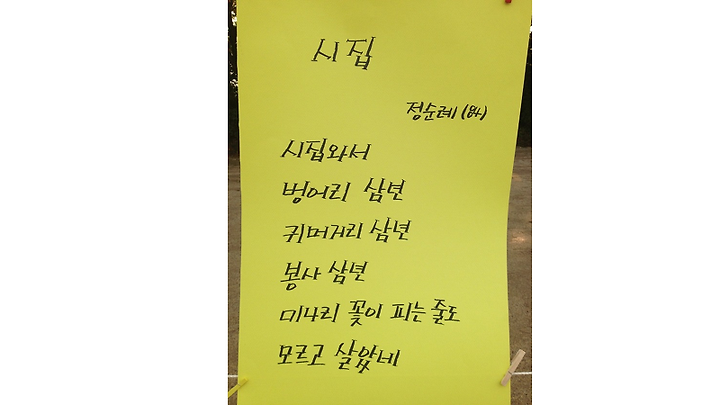 시집
정순례 (84)
시집와서
벙어리 삼년
귀머거리 삼년
봉사 삼년
미나리 꽃이 피는 줄도
모르고 살았네